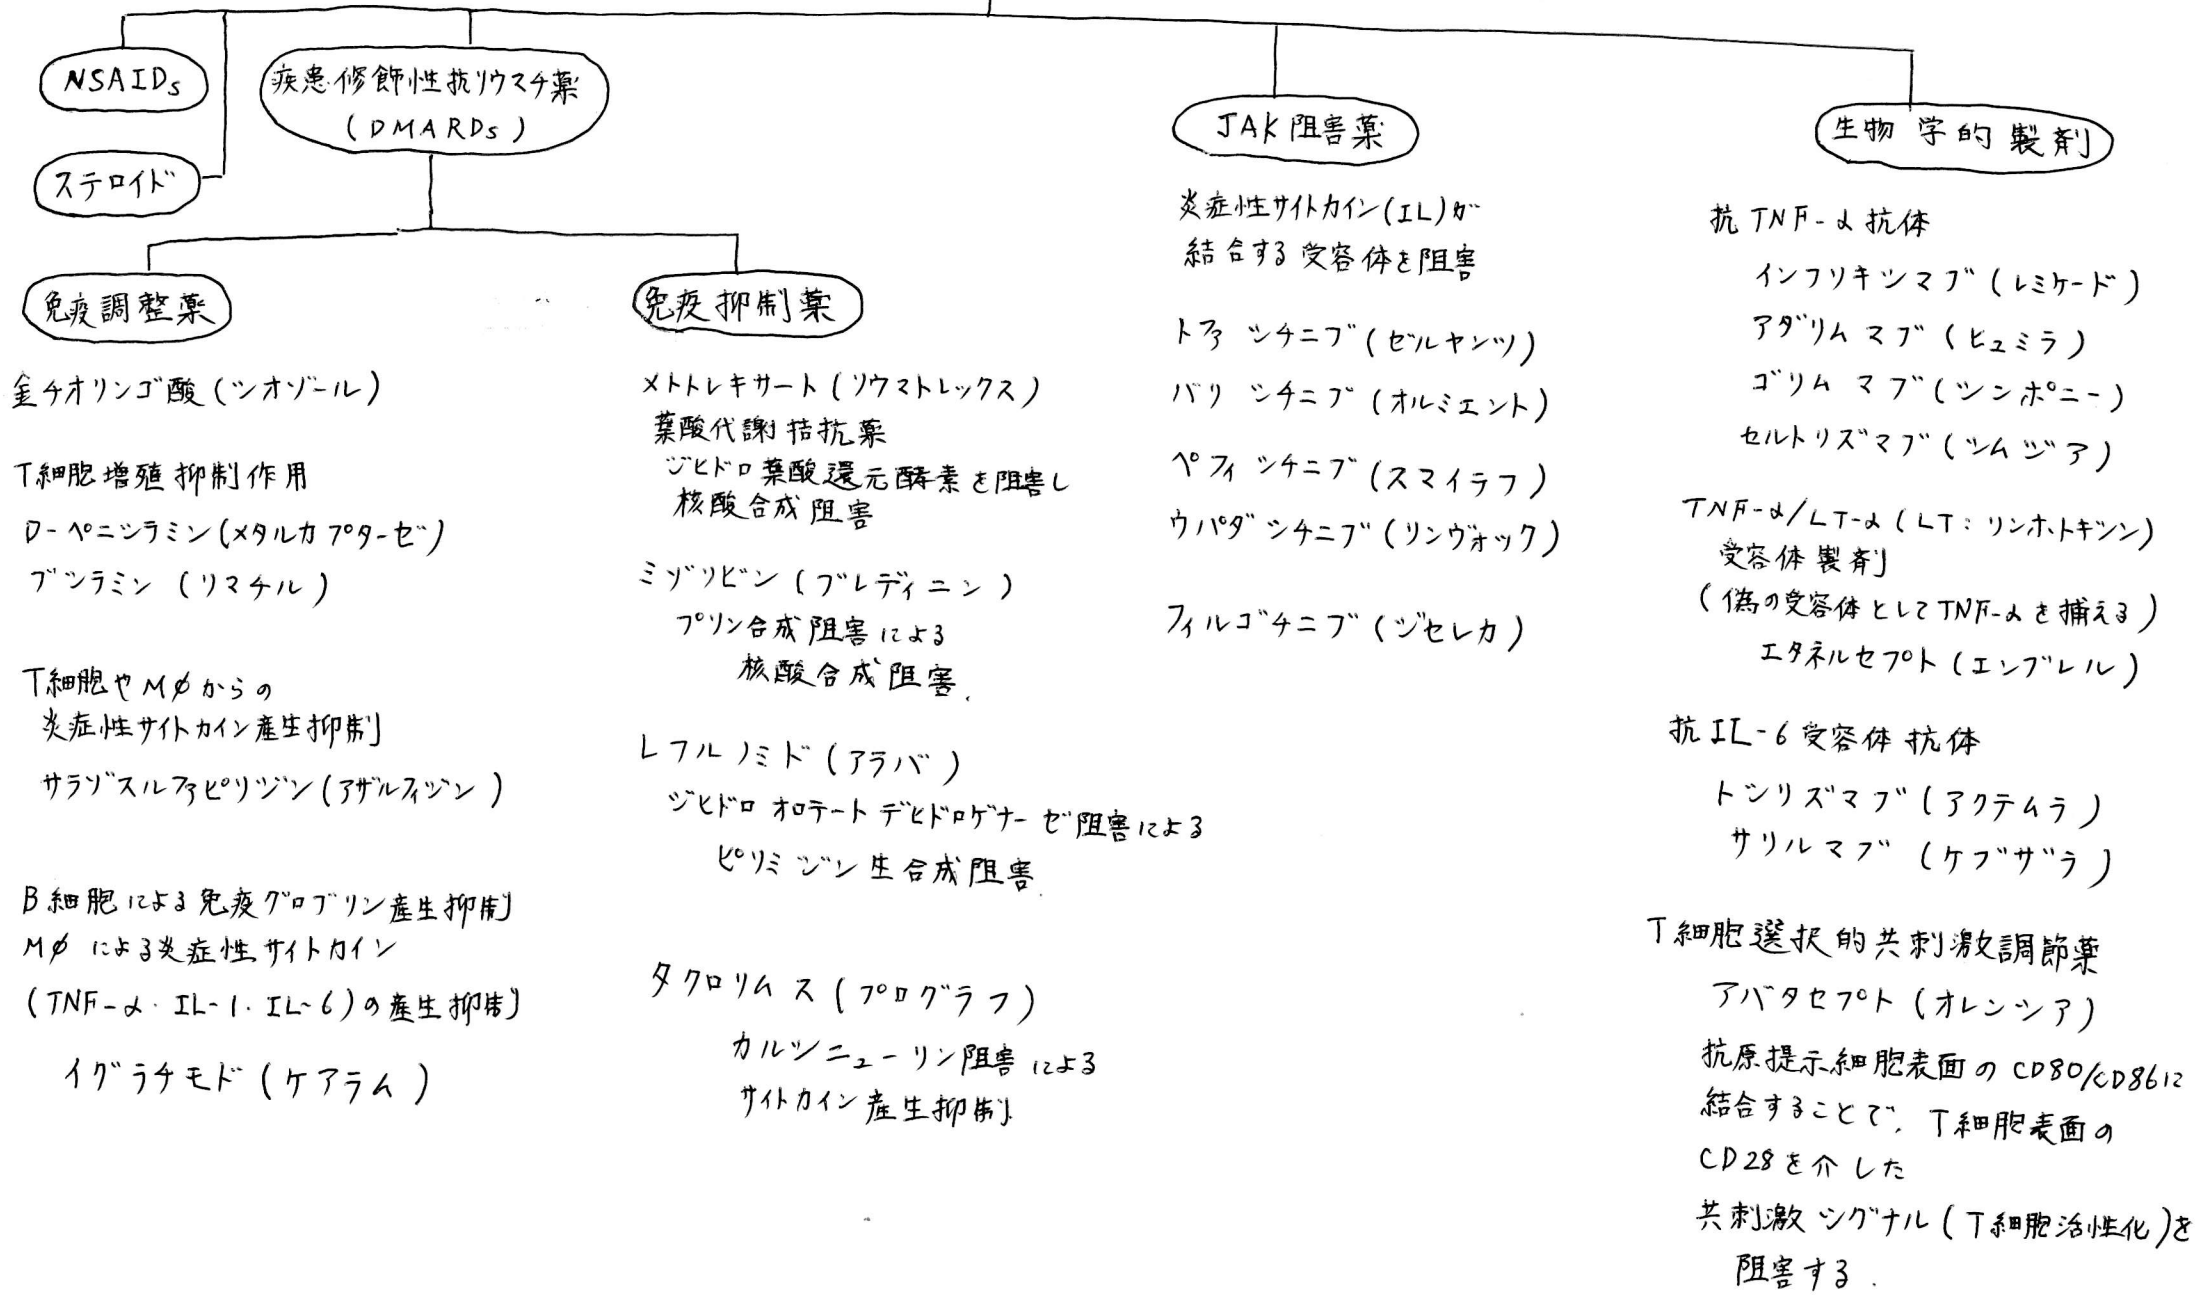 NSAIDs
ステロイド
疾患修飾性抗リウマチ薬
(DMARDs)
免疫調整薬
金チオリンゴ酸(シオゾール)
T細胞増殖抑制作用
D-ペニシラミン(メタルカプターゼ)
ブシラミン(リマチル)
T細胞やMφからの
炎症性サイトカイン産生抑制
サラゾスルファピリジン(アザルフィジン)
B細胞による免疫グロブリン産生抑制
Mφによる炎症性サイトカイン
(TNF-α・IL-1・IL-6)の産生抑制
イグラチモド(ケアラム)
免疫抑制薬
メトトレキサート(リウマトレックス)
葉酸代謝拮抗薬
ジヒドロ葉酸還元酵素を阻害し
核酸合成阻害
ミゾリビン(ブレディニン)
プリン合成阻害による
核酸合成阻害.
レフルノミド(アラバ)
ジヒドロオロテートデヒドロゲナーゼ阻害による
ピリミジン生合成阻害.
タクロリムス(プログラフ)
カルシニューリン阻害による
サイトカイン産生抑制
JAK阻害薬
炎症性サイトカイン(IL)が
結合する受容体を阻害
トファシチニブ(ゼルヤンツ)
バリシチニブ(オルミエント)
ペフィシチニブ(スマイラフ)
ウパダシチニブ(リンヴォック)
フィルゴチニブ(ジセレカ)
生物学的製剤
抗TNF-α抗体
インフリキシマブ(レミケード)
アダリムマブ(ヒュミラ)
ゴリムマブ(シンポニー)
セルトリズマブ(シムジア)
TNF-α/LT-α(LT:リンホトキシン)
受容体製剤
(偽の受容体としてTNF-αを捕える)
エタネルセプト(エンブレル)
抗IL-6受容体抗体
トシリズマブ(アクテムラ)
サリルマブ(ケブザラ)
T細胞選択的共刺激調節薬
アバタセプト(オレンシア)
抗原提示細胞表面のCD80/CD86に
結合することで、T細胞表面の
CD28を介した
共刺激シグナル(T細胞活性化)を
阻害する.